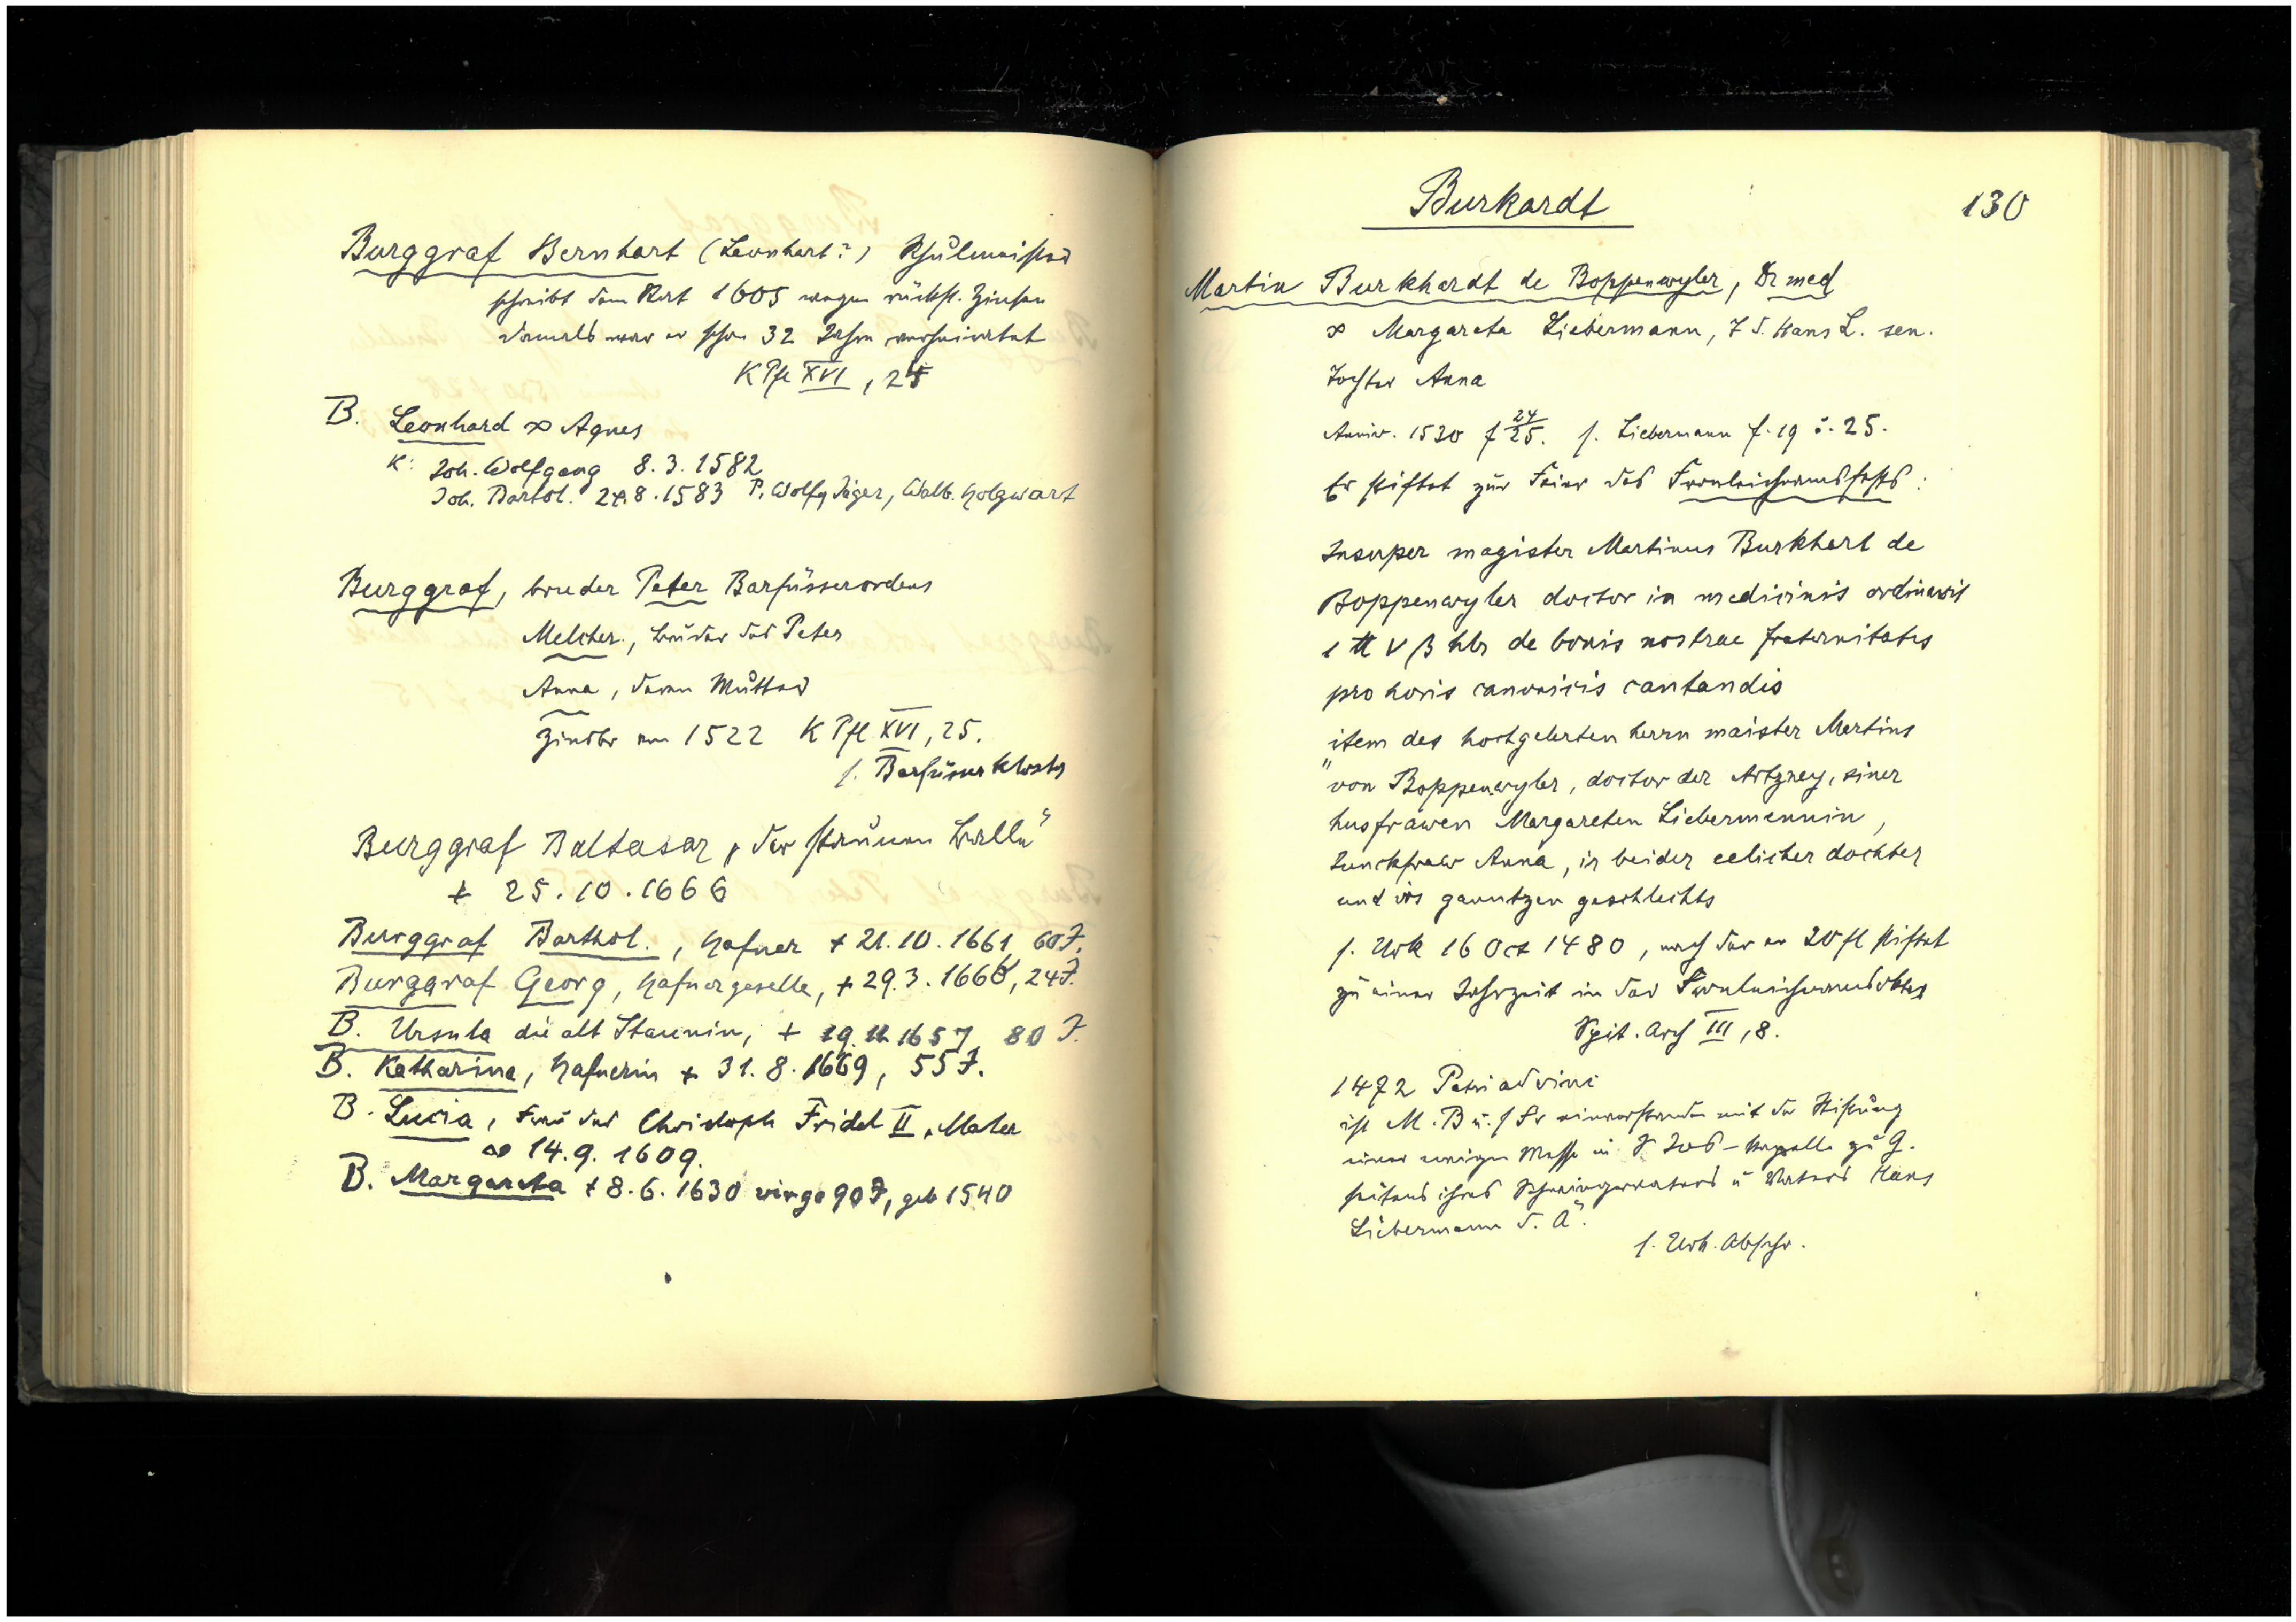 Burggraf Bernhart (Leonhart?) Schulmeister
schreibt dem Rat 1605 wegen rückst. Zinsen
damals war er schon 32 Jahre verheiratet
K Pfl XVI, 25
B. Leonhard ∞ Agnes
K: Joh. Wolfgang 8.3.1582
Joh. Bartol. 24.8.1583 P. Wolfg Jäger, Walb. Holzwart
Burggraf, bruder Peter Barfüsserordens
Melcher, Bruder des Peter
Anna, deren Mutter
Zinsbr von 1522 K Pfl XVI, 25.
s. Barfüsserkloster
Burggraf Baltasar, der
+ 25.10.1666
Burggraf Barthol., Hafner + 21.10.1661, 60 J.
Burggraf Georg, Hafnergeselle, + 29.3.1666, 24 J.
B. Ursula die alt, + 19.11.1657 80 J.
B. Katharina, Hafnerin + 31.8.1669, 55 J.
B. Lucia, Frau des Christoph Fridel II, Maler
∞ 14.9.1609.
B. Margareta + 8.6.1630 virgo 90 J, geb 1540
Burkardt 130
Martin Burkhardt de Boppenwyler, Dr med
∞ Margareta Liebermann, T d. Hans L. sen.
Tochter Anna
Anniv. 1530 f 24/25. s. Liebermann f. 19 u. 25.
Er stiftet zur Feier des Fronleichnamsfests:
Insuper magister Martinus Burkhart de
Boppenwyler doctor in medicinis ordinavit
1 ℔ V ß hlr de bonis nostrae fraternitatis
pro horis canonicis cantandis
„item des hochgelerten herrn maister Martins
von Boppenwyler, doctor der Artzney, siner
husfrawen Margareten Liebermennin,
Junckfraw Anna, ir beider eelicher dochter
und irs ganntzen geschlechts
s. Urk 16 Oct 1480, nach der er 20 fl stiftet
zu einer Jahrzeit in der
Spit. Arch III, 8.
1472 Petri ad vinc
ist M. B u. s Fr einverstanden mit der Stiftung
einer ewigen Messe in S. Jos-Kapelle zu G.
seitens ihres Schwiegervaters u Vaters Hans
Liebermann d. Ä.
s. Urk. Abschr.